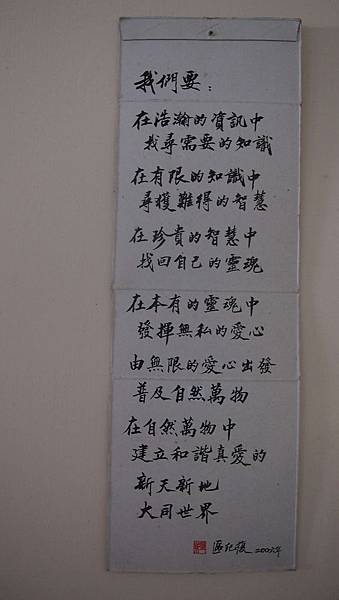 我們要：
在浩瀚的資訊中
找尋需要的知識
在有限的知識中
尋獲難得的智慧
在珍貴的智慧中
找回自己的靈魂
在本有的靈魂中
發揮無私的愛心
由無限的愛心出發
普及自然萬物
在自然萬物中
建立和諧真愛的
新天新地
大同世界
區紀復